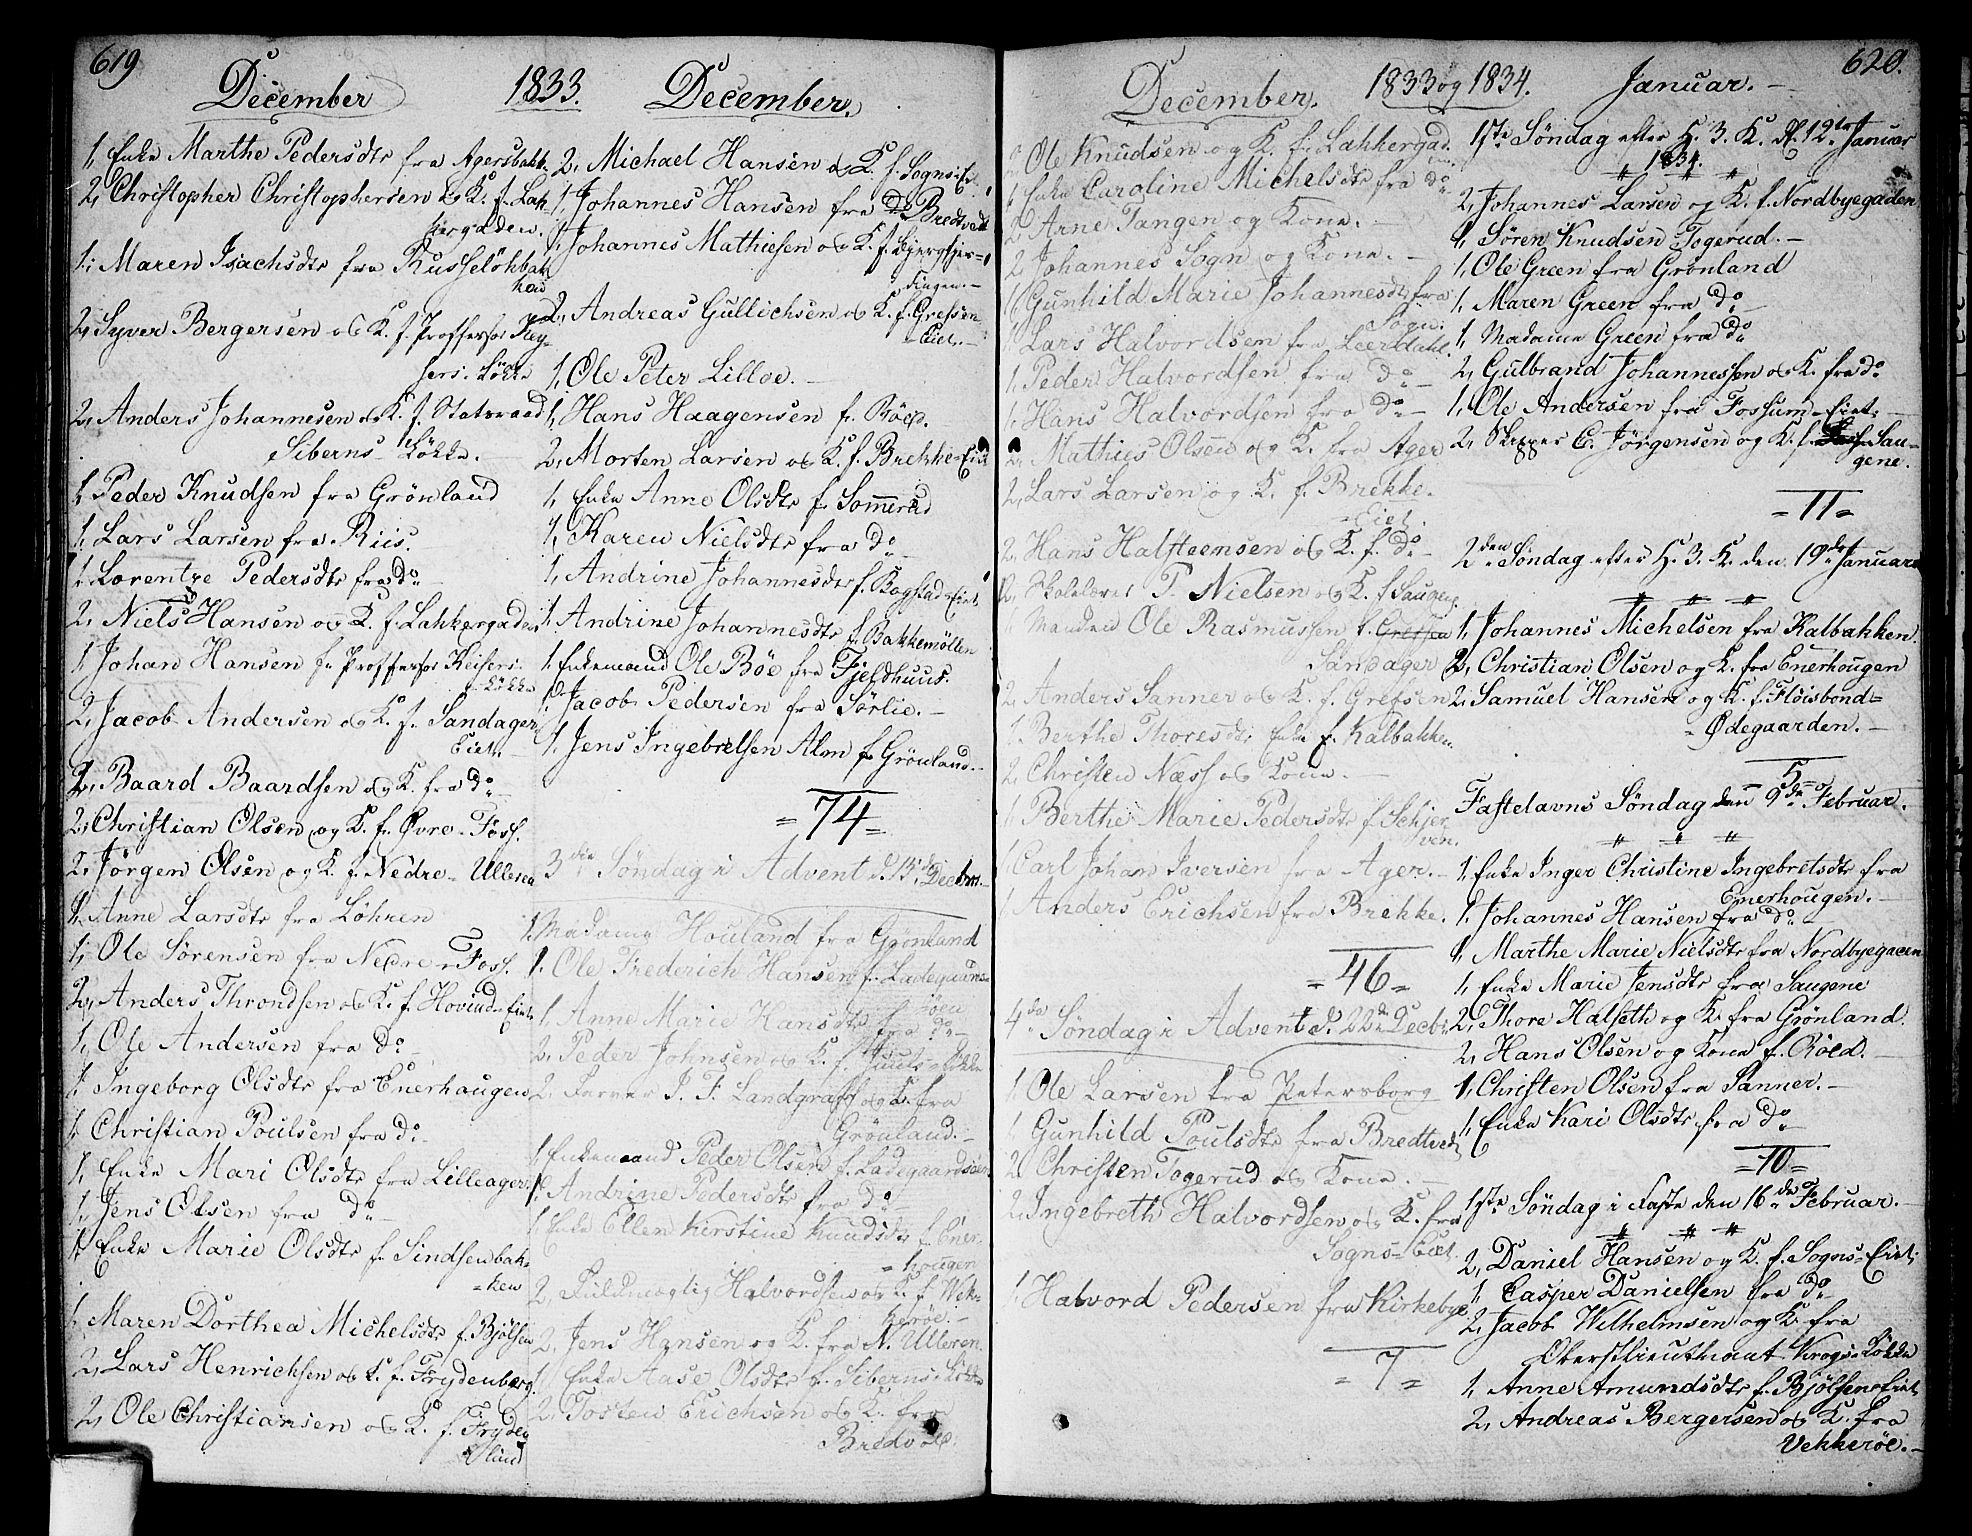 619
December 1833. December.
1, Enke Marthe Pedersdtr fra Agersbakk.
2, Christopher Christophersen og K. f. Lak-
kergaden.
1, Maren Isachsdtr fra Russeløkbak
ken
2, Syver Bergersen og K. f. Proffessor Key-
sers Løkke
2, Anders Johannesen og K. f. Statsraad
Siberns Løkke.
1, Peder Knudsen fra Grønland
1, Lars Larsen fra Riis.
1, Lorentze Pedersdtr fra do
2, Niels Hansen og K. f. Lakkergaden
1, Johan Hansen fr Proffessor Keisers
Løkke
2, Jacob Andersen og K. f. Sandager
Eiet.
2, Baard Baardsen og K. fra do
2, Christian Olsen og K. f. Øvre-Foss.
2, Jørgen Olsen og K. f. Nedre-Ulleren
1, Anne Larsdtr fra Løhren
1, Ole Sørensen fra Nedre-Foss.
2, Anders Throndsen og K. f. Hovind-Eiet
1, Ole Andersen fra do
1, Ingeborg Olsdtr fra Enerhaugen
1, Christian Poulsen fra do
1, Enke Mari Olsdtr fra Lilleager
1, Jens Olsen fra do
1, Enke Marie Olsdtr f. Sindsenbak-
ken
1, Maren Dorthea Michelsdtr f. Bjølsen
2, Lars Henrichsen og K. f. Frydenberg.
2, Ole Christiansen og K. f. Fryden
lund
2, Michael Hansen og K. f. Sogns-E.
1, Johannes Hansen fra do Bredvedt
1, Johannes Mathiesen og K. f. Bjergfjer-
dingen.
2, Andreas Gullichsen og K. f. Grefsen-
Eiet.
1, Ole Peter Lilloe.
1, Hans Haagensen f. Røed.
2, Morten Larsen og K. f. Brekke-Eiet
1, Enke Anne Olsdtr f. Sommerud
1, Karen Nielsdtr fra do
1, Andrine Johannesdtr f. Bogstad-Eiet
1, Andrine Johannesdtr f. Bakkemøllen
1, Enkemand Ole Bøe fra Fjeldhuus.
1, Jacob Pedersen fra Sørlie.
1, Jens Ingebretsen Alm f. Grønland.
=74=
3die Søndag i Advent d. 15de Decbr.
1, Madame Houland fra Grønland
1, Ole Frederich Hansen f. Ladegaards-
øen
1, Anne Marie Hansdtr fra do
2, Peder Johnsen og K. f. Juuls-Løkke
2, Farver I. F. Landgraff og K. fra
Grønland.
1, Enkemand Peder Olsen f. Ladegaardsøen
1, Andrine Pedersdtr fra do
1, Enke Ellen Kirstine Knudsdtr f. Ener-
hougen
2, Fuldmægtig Halvordsen og K. f. Vek-
kerøe.
2, Jens Hansen og K. fra N. Ulleren.
1, Enke Aase Olsdtr f. Siberns-Løkke
2, Tosten Erichsen og K. fra
Bredvold.
620.
December. 1833 og 1834. Januar.
2, Ole Knudsen og K. f. Lakkergad.
1, Enke Caroline Michelsdtr fra do
2, Arne Tangen og Kone.
2, Johannes Sogn og Kone.
1, Gunhild Marie Johannesdtr fra
Sogn.
1, Lars Halvordsen fra Leerdahl.
1, Peder Halvordsen fra do
1, Hans Halvordsen fra do
2, Mathies Olsen og K. fra Ager
2, Lars Larsen og K. f. Brekke.
Eiet.
2, Hans Halsteensen og K. f. do
2, Skolelærer P. Nielsen og K. f. Saugene.
1, Manden Ole Rasmussen f. Grefsen
Sandager
2, Anders Sanner og K. f. Grefsen
1, Berthe Thoresdtr Enke f. Kalbakken
2, Christen Næss og Kone.
1, Berthe Marie Pedersdtr f. Schjer
ven.
1, Carl Johan Iversen fra Ager.
1, Anders Erichsen fra Brekke.
=46=
4de Søndag i Advent d. 22de Decbr
1, Ole Larsen fra Petersborg
1, Gunhild Poulsdtr fra Bredtvedt
2, Christen Togerud og Kone.
2, Ingebreth Halvordsen og K. fra
Sogns-Eiet.
1, Halvord Pedersen fra Kirkebye.
=7=
1ste Søndag efter H. 3. K. d. 12te Januar
1834.
2, Johannes Larsen og K. f. Nordbyegaden
1, Søren Knudsen Togerud.
1, Ole Green fra Grønland
1, Maren Green fra do
1, Madame Green fra do
2, Gulbrand Johannessen og K. fra do
1, Ole Andersen fra Fossum-Eiet.
2, Skipper C. Jørgensen og K. f. Sau-
gene.
=11=
2den Søndag efter H. 3. K. den 19de Januar
1, Johannes Michelsen fra Kalbakken
2, Christian Olsen og K. fra Enerhougen
2, Samuel Hansen og K. f. Fløisbond-
Ødegaarden.
5
Fastelavns Søndag den 9de Februar.
1, Enke Inger Christine Ingebretsdtr fra
Enerhougen.
1, Johannes Hansen fra do
1, Marthe Marie Nielsdtr fra Nordbyegaden
1, Enke Marie Jensdtr fra Saugene
2, Thore Halseth og K. fra Grønland.
2, Hans Olsen og Kone f. Røed.
1, Christen Olsen fra Sanner.
1, Enke Kari Olsdtr fra do
=10=
1ste Søndag i Faste den 16de Februar.
2, Daniel Hansen og K. f. Sogns-Eiet
1, Casper Danielsen fra do
2, Jacob Wilhelmsen og K. fra
Oberstlieutnant Krogs-Løkke
1, Anne Amundsdtr f. Bjølsen-Eiet
2, Andreas Bergersen og K. fra
Vekkerøe.